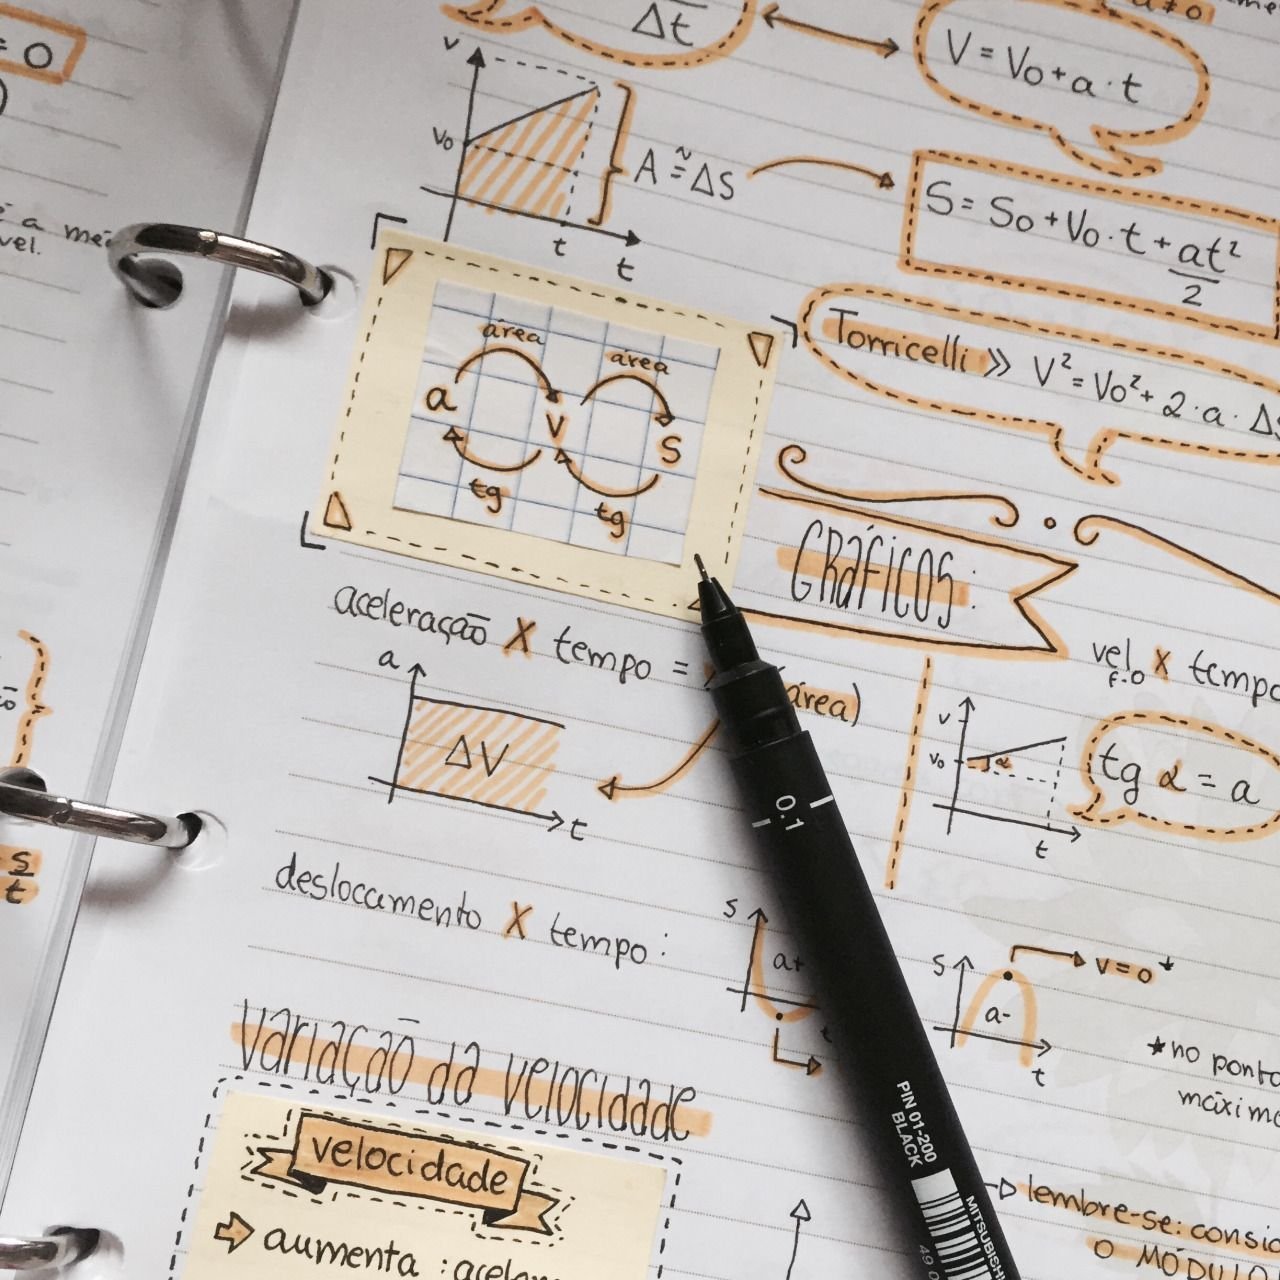 = 0
Δt
a ≠ 0
V = V₀ + a · t
v
V₀
t
t
A ≅ ΔS
S = S₀ + V₀ · t + at²/2
é a
vel.
Torricelli >> V² = V₀² + 2 · a · ΔS
área
área
a
V
S
tg
tg
GRÁFICOS:
aceleração X tempo =
área)
a
ΔV
t
vel. X tempo
v
V₀
α
t
tg α = a
s
t
deslocamento X tempo:
S
a+
t
S
a-
t
V = 0*
*no ponto
máximo
variação da velocidade
velocidade
aumenta :
lembre-se:
O MÓDULO
0.1
PIN 01-200
BLACK
MITSUBISHI